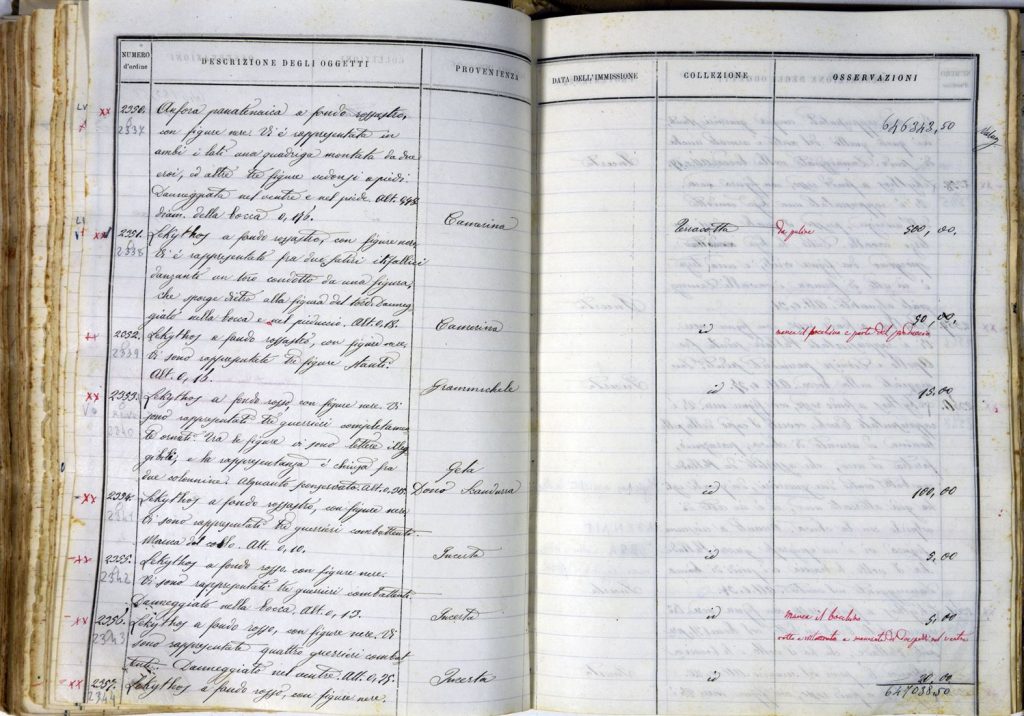 NUMERO d'ordine
DESCRIZIONE DEGLI OGGETTI
PROVENIENZA
DATA DELL'IMMISSIONE
COLLEZIONE
OSSERVAZIONI
646343,50
LV xx 2350. Anfora panatenaica a fondo rossastro,
2337 con figure nere. Vi è rappresentata in
ambi i lati una quadriga montata da due
eroi, ed altre tre figure a piedi.
Danneggiata nel ventre e nel piede. Alt.
diam. della bocca 0,176. Camarina Terracotta 500,00.
2351. Lekythos a fondo rossastro, con figure nere.
2338 Vi è rappresentato fra due satiri itifallici
danzanti un toro condotto da una figura,
che sporge dietro alla figura del toro. Danneg
giato nella bocca e nel peduccio. Alt. 0,18. Camarina id 30,00.
manca il bocchino e parte del peduccio
xx 2352. Lekythos a fondo rossastro, con figure nere.
2339 Vi sono rappresentate tre figure stanti.
Alt. 0,13. Grammichele id 15,00
xx 2353. Lekythos a fondo rosso con figure nere. Vi
sono rappresentati tre guerrieri completamen
2340 te armati. Tra le figure vi sono lettere illeg
gibili, e la rappresentanza è chiusa fra
due colonnine. Alquanto Alt. 0,30. Gela
Dono Scandurra id 100,00
xx 2354. Lekythos a fondo rossastro, con figure nere
2341 Vi sono rappresentati tre guerrieri combattenti.
Manca del collo. Alt. 0,10. Incerta id 5,00
xx 2355. Lekythos a fondo rosso con figure nere.
2342 Vi sono rappresentati tre guerrieri combattenti.
Danneggiato nella bocca. Alt. 0,13. Incerta id 5,00
manca il bocchino
xx 2356. Lekythos a fondo rosso, con figure nere. Vi
2343 sono rappresentati quattro guerrieri combat
tenti. Danneggiato nel ventre. Alt. 0,15. Incerta id
rotto e nel ventre
xx 2357. Lekythos a fondo rosso, con figure nere.
2344
647038.50